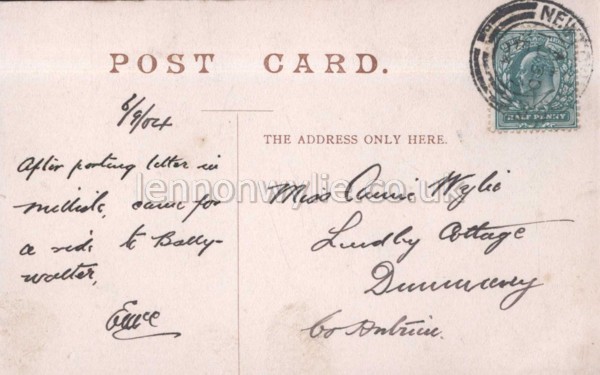 POST CARD.
NEWTO
HALF PENNY
8/9/04
THE ADDRESS ONLY HERE.
After posting letter in
Millisle, came for
a ride to Bally-
walter,
lennonwylie.co.uk
Miss Annie Wylie
Lindby Cottage
Dunmurry
Co Antrim.